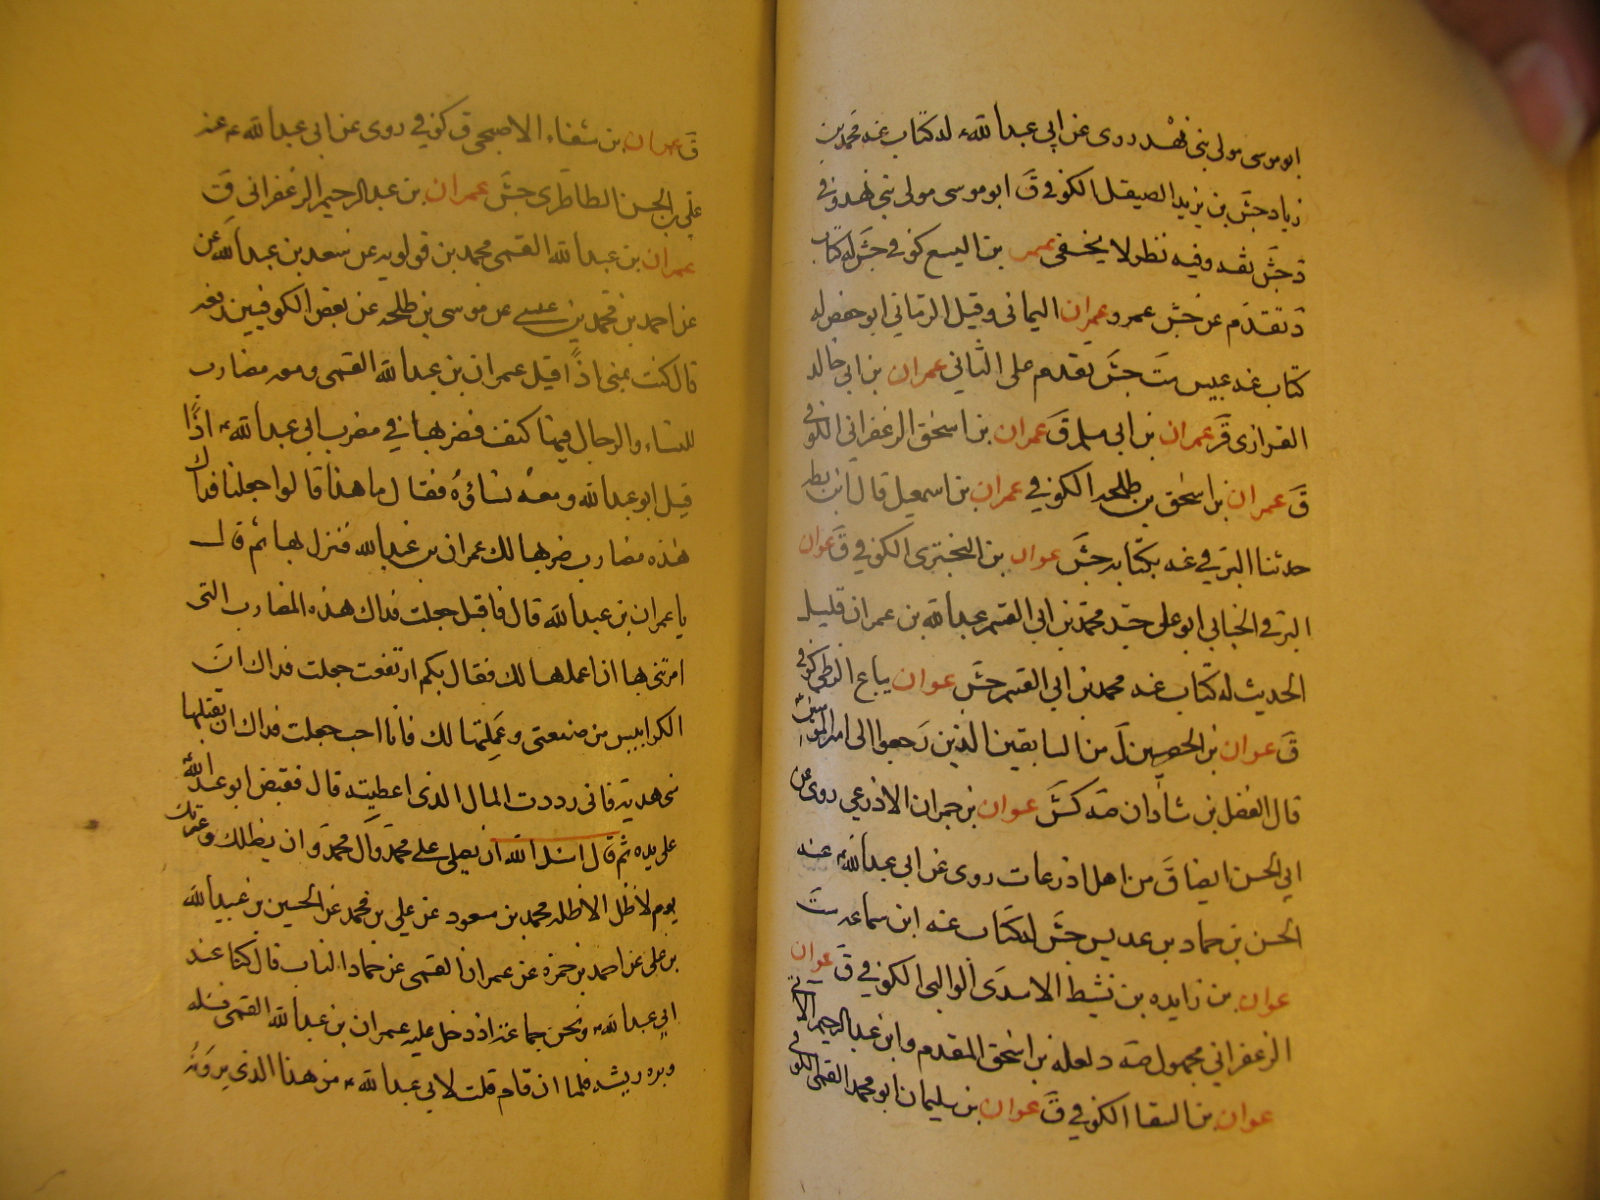 ابو موسى مولى بنى نهد روى عن ابى عبد الله ع له كتاب عنه محمد بن
زياد جش بن يزيد الصيقل الكوفى ق ابو موسى مولى بنى نهد كوفى
د جش ثقه وفيه نظر لا يخفى عمر بن اليسع كوفى جش له كتاب
د تقدم عن جش عمرو عمران اليمانى وقيل الرمانى ابو حفص له
كتاب عنه عبيس ست جش تقدم على الثانى عمران بن ابى خالد
الفزارى قر عمران بن ابى مسلم ق عمران بن اسحق الزعفرانى الكوفى
ق عمران بن اسحق بن طلحه الكوفى عمران بن اسمعيل قال ابن بطه
حدثنا البرقى عنه بكتابه جش عمران بن البخترى الكوفى ق عمران
البرقى الجنابى ابو على جد محمد بن ابى القسم عبد الله بن عمران قليل
الحديث له كتاب عنه محمد بن ابى القسم جش عمران بياع الزطى كوفى
ق عمران بن الحصين ل من السابقين الذين رجعوا الى امير المؤمنين
قال الفضل بن شاذان صه كش عمران بن حمران الاذرعى روى عن
ابى الحسن ايضا ق من اهل اذرعات روى عن ابى عبد الله ع عنه
الحسن بن حماد بن عديس جش له كتاب عنه ابن سماعه ست
عمران بن زايده بن نشيط الاسدى الوالبى الكوفى ق عمران
الزعفرانى مجهول صه د لعله بن اسحق المقدم وابن عبد الرحيم الاتى
عمران بن السقا الكوفى ق عمران بن سليمان ابو محمد القمى الكوفى
ق عمران بن شفاء الاصبحى ق كوفى روى عن ابى عبد الله ع عنه
على بن الحسن الطاطرى جش عمران بن عبد الرحيم الزعفرانى ق
عمران بن عبد الله القمى محمد بن قولويه عن سعد بن عبد الله عن
عن احمد بن محمد بن عيسى عن موسى بن طلحه عن بعض الكوفيين رفعه
قال كنت بمنى اذا قبل عمران بن عبد الله القمى ومعه مضارب
للنساء والرجال فيها كنف فضربها فى مضرب ابى عبد الله ع اذا
قبل ابو عبد الله ومعه نسائه فقال ما هذا قالوا جعلنا فداك
هذه مضارب ضربها لك عمران بن عبد الله فنزل بها ثم قال
يا عمران بن عبد الله قال فاقبل جعلت فداك هذه المضارب التى
امرتنى بها ان اعملها لك فقال بكم ارتفعت جعلت فداك ان
الكرابيس من صنعتى وعملتها لك فانا احب جعلت فداك ان تقبلها
منى هدية فانى رددت المال الذى اعطيته قال فقبض ابو عبد الله
على يده ثم قال اسئل الله ان يصلى على محمد وآل محمد وان يظلك وعترتك
يوم لا ظل الا ظله محمد بن مسعود عن على بن محمد عن الحسين بن عبيد الله
بن على عن احمد بن حمزه عن عمران القمى عن حماد الناب قال كنا عند
ابى عبد الله ع ونحن جماعه اذ دخل عليه عمران بن عبد الله القمى فسئله
وبره وبشه فلما ان قام قلت لابى عبد الله ع من هذا الذى بررته